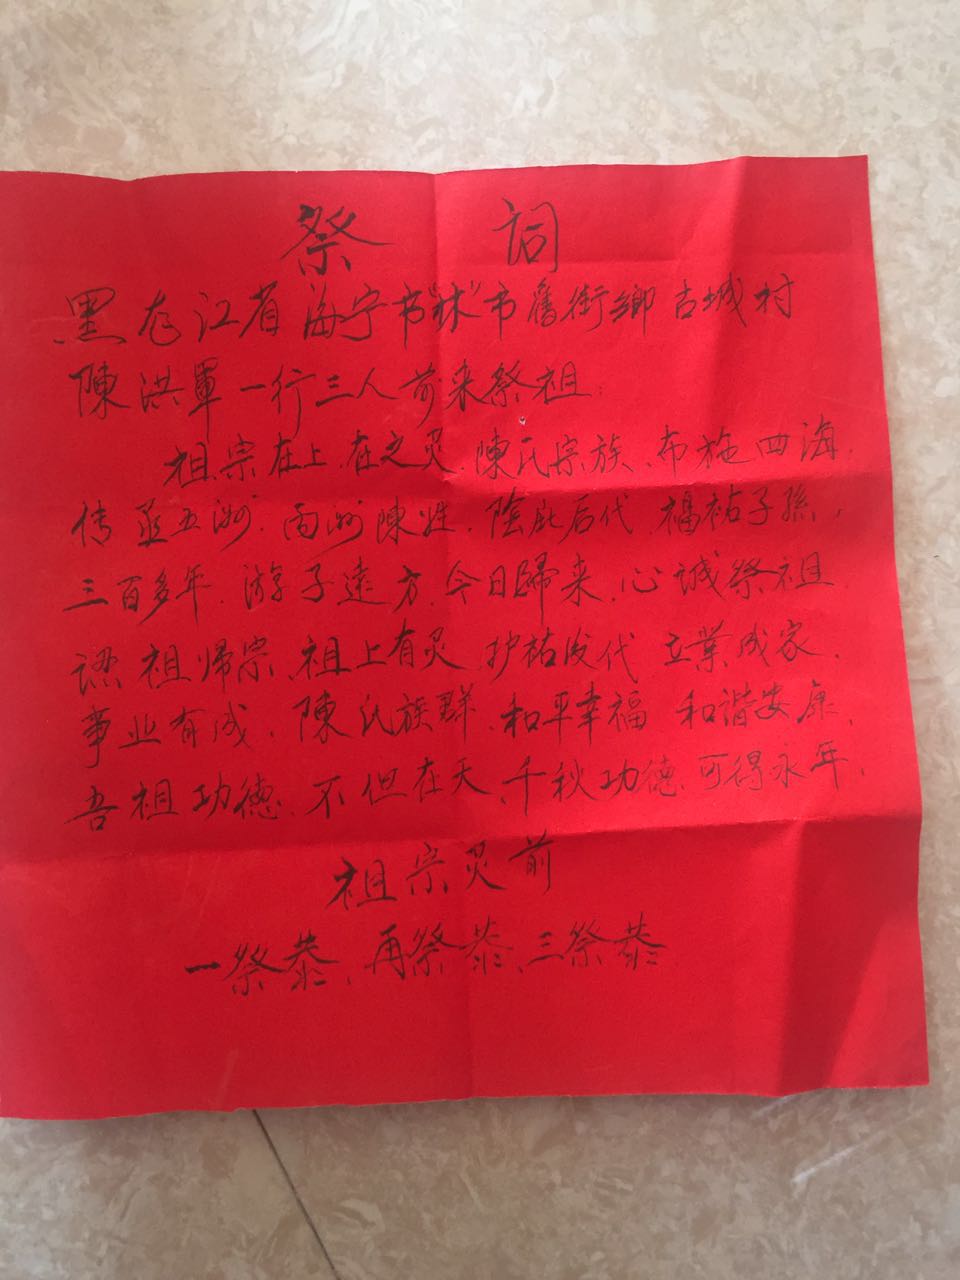 祭 詞
黑龙江省海宁市"林"市舊街鄉古城村
陳洪軍一行三人前来祭祖:
祖宗在上,在之灵,陳氏宗族,布施四海,
传丞五洲,两洲陳姓,陰庇后代,福祐子孫,
三百多年,游子遠方,今日歸来,心誠祭祖,
認祖归宗,祖上有灵 护祐后代 立業成家,
事业有成,陳氏族群,和平幸福 和谐安康,
吾祖功德,不但在天,千秋功德,可得永年,
祖宗灵前
一祭恭、再祭恭、三祭恭